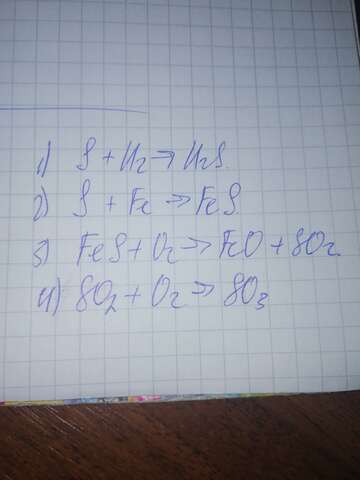 1) S + H2 → H2S.
2) S + Fe → FeS
3) FeS + O2 → FeO + SO2.
4) SO2 + O2 → SO3